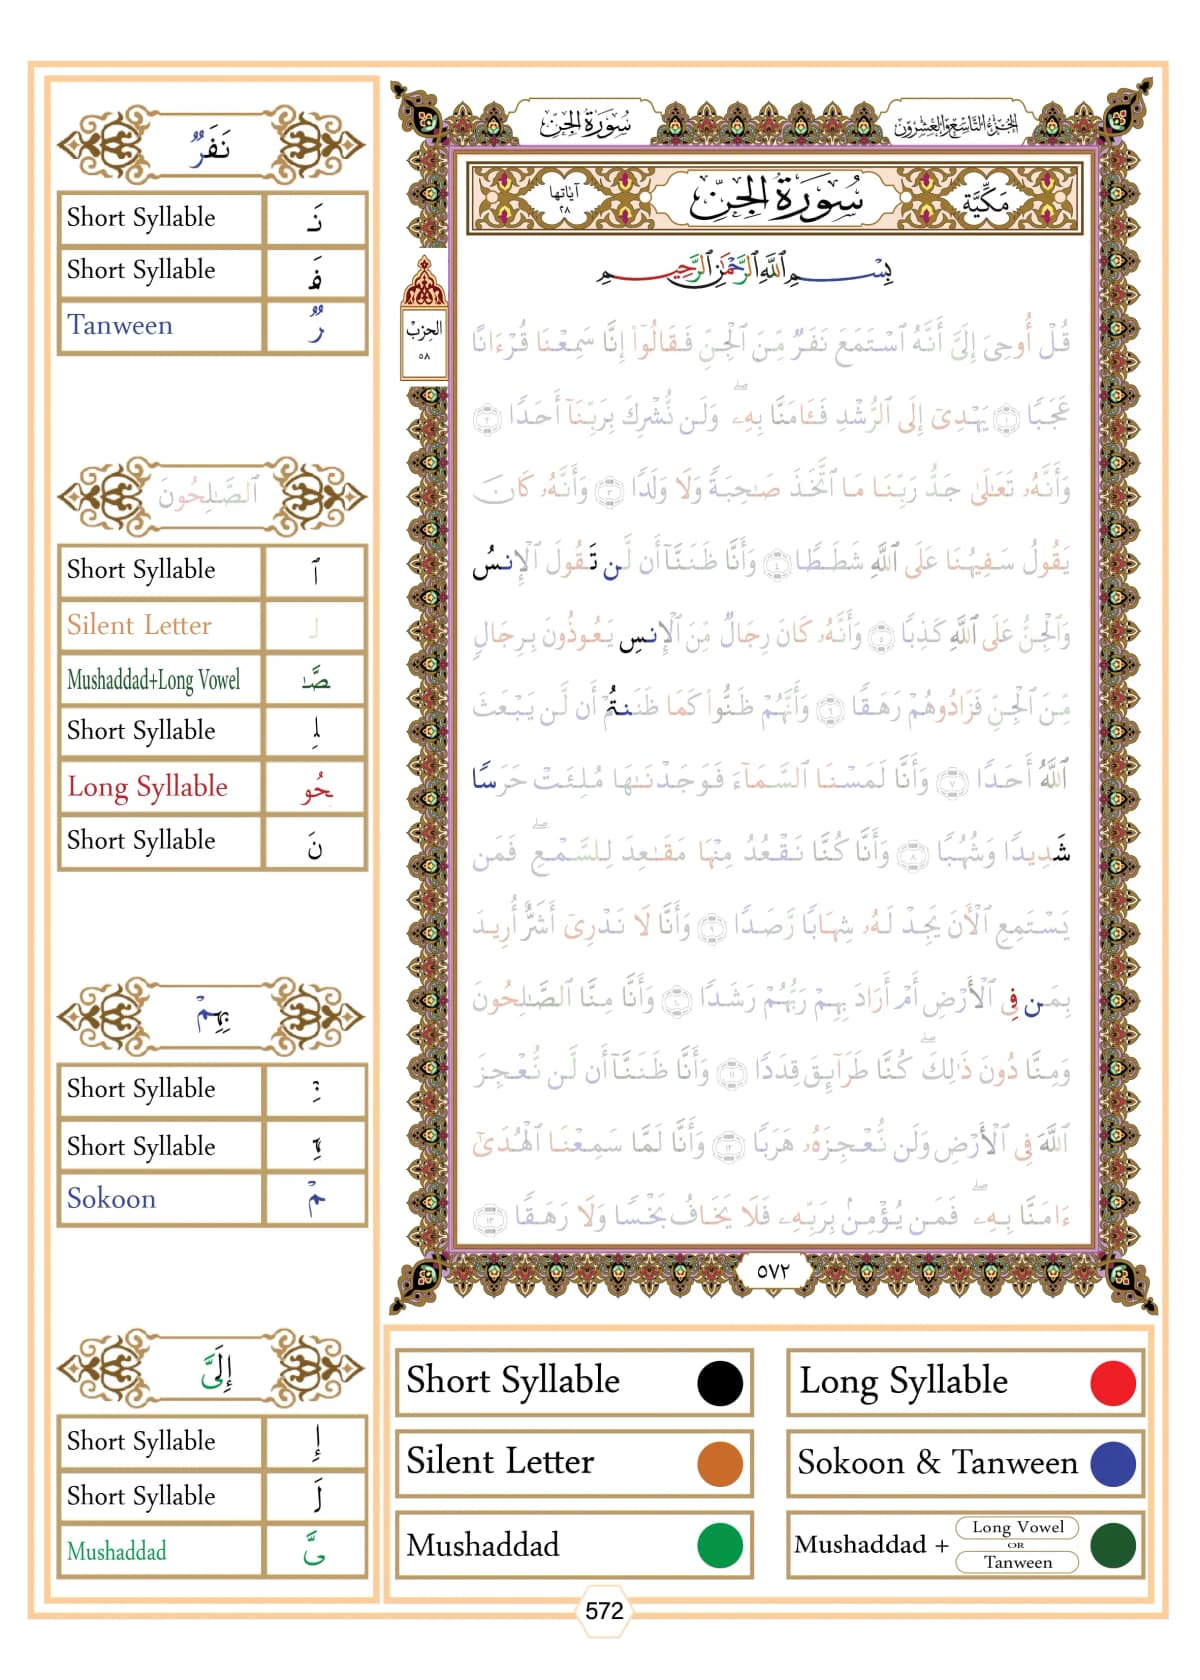 سُورَةُ الجِنّ
الجُزْءُ التَّاسِعُ وَالعِشْرُونَ
مَكِّيَّة
سُورَةُ الجِنِّ
آيَاتُهَا
٢٨
بِسْمِ ٱللَّهِ ٱلرَّحْمَٰنِ ٱلرَّحِيمِ
الحِزْبْ
٥٨
قُلْ أُوحِىَ إِلَىَّ أَنَّهُ ٱسْتَمَعَ نَفَرٌ مِّنَ ٱلْجِنِّ فَقَالُوٓا۟ إِنَّا سَمِعْنَا قُرْءَانًا
عَجَبًا ١ يَهْدِىٓ إِلَى ٱلرُّشْدِ فَـَٔامَنَّا بِهِۦ ۖ وَلَن نُّشْرِكَ بِرَبِّنَآ أَحَدًا ٢
وَأَنَّهُۥ تَعَٰلَىٰ جَدُّ رَبِّنَا مَا ٱتَّخَذَ صَٰحِبَةً وَلَا وَلَدًا ٣ وَأَنَّهُۥ كَانَ
يَقُولُ سَفِيهُنَا عَلَى ٱللَّهِ شَطَطًا ٤ وَأَنَّا ظَنَنَّآ أَن لَّن تَقُولَ ٱلْإِنسُ
وَٱلْجِنُّ عَلَى ٱللَّهِ كَذِبًا ٥ وَأَنَّهُۥ كَانَ رِجَالٌ مِّنَ ٱلْإِنسِ يَعُوذُونَ بِرِجَالٍ
مِّنَ ٱلْجِنِّ فَزَادُوهُمْ رَهَقًا ٦ وَأَنَّهُمْ ظَنُّوا۟ كَمَا ظَنَنتُمْ أَن لَّن يَبْعَثَ
ٱللَّهُ أَحَدًا ٧ وَأَنَّا لَمَسْنَا ٱلسَّمَآءَ فَوَجَدْنَٰهَا مُلِئَتْ حَرَسًا
شَدِيدًا وَشُهُبًا ٨ وَأَنَّا كُنَّا نَقْعُدُ مِنْهَا مَقَٰعِدَ لِلسَّمْعِ ۖ فَمَن
يَسْتَمِعِ ٱلْـَٔانَ يَجِدْ لَهُۥ شِهَابًا رَّصَدًا ٩ وَأَنَّا لَا نَدْرِىٓ أَشَرٌّ أُرِيدَ
بِمَن فِى ٱلْأَرْضِ أَمْ أَرَادَ بِهِمْ رَبُّهُمْ رَشَدًا ١٠ وَأَنَّا مِنَّا ٱلصَّٰلِحُونَ
وَمِنَّا دُونَ ذَٰلِكَ ۖ كُنَّا طَرَآئِقَ قِدَدًا ١١ وَأَنَّا ظَنَنَّآ أَن لَّن نُّعْجِزَ
ٱللَّهَ فِى ٱلْأَرْضِ وَلَن نُّعْجِزَهُۥ هَرَبًا ١٢ وَأَنَّا لَمَّا سَمِعْنَا ٱلْهُدَىٰٓ
ءَامَنَّا بِهِۦ ۖ فَمَن يُؤْمِنۢ بِرَبِّهِۦ فَلَا يَخَافُ بَخْسًا وَلَا رَهَقًا ١٣
٥٧٢
نَفَرٌ
Short Syllable نَـ
Short Syllable ـفَـ
Tanween ـرٌ
ٱلصَّٰلِحُونَ
Short Syllable ٱ
Silent Letter لـ
Mushaddad+Long Vowel ـصَّٰـ
Short Syllable ـلِـ
Long Syllable ـحُو
Short Syllable نَ
بِهِمْ
Short Syllable بِـ
Short Syllable ـهِـ
Sokoon ـمْ
إِلَىَّ
Short Syllable إِ
Short Syllable لَـ
Mushaddad ـىَّ
Short Syllable
Long Syllable
Silent Letter
Sokoon & Tanween
Mushaddad
Mushaddad + Long Vowel OR Tanween
572